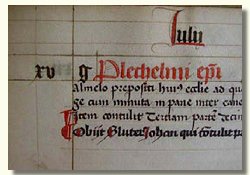 Iulii
xv g Plechelmi epi
Almelo prepositi huiꝰ ecclie ad qu
ge cum minuta in pane inter cano
item contulit Terciam parte decim
Obijt Gluter Johan qui contulit p